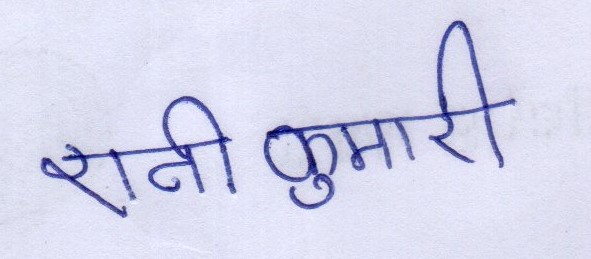 रानी कुमारी